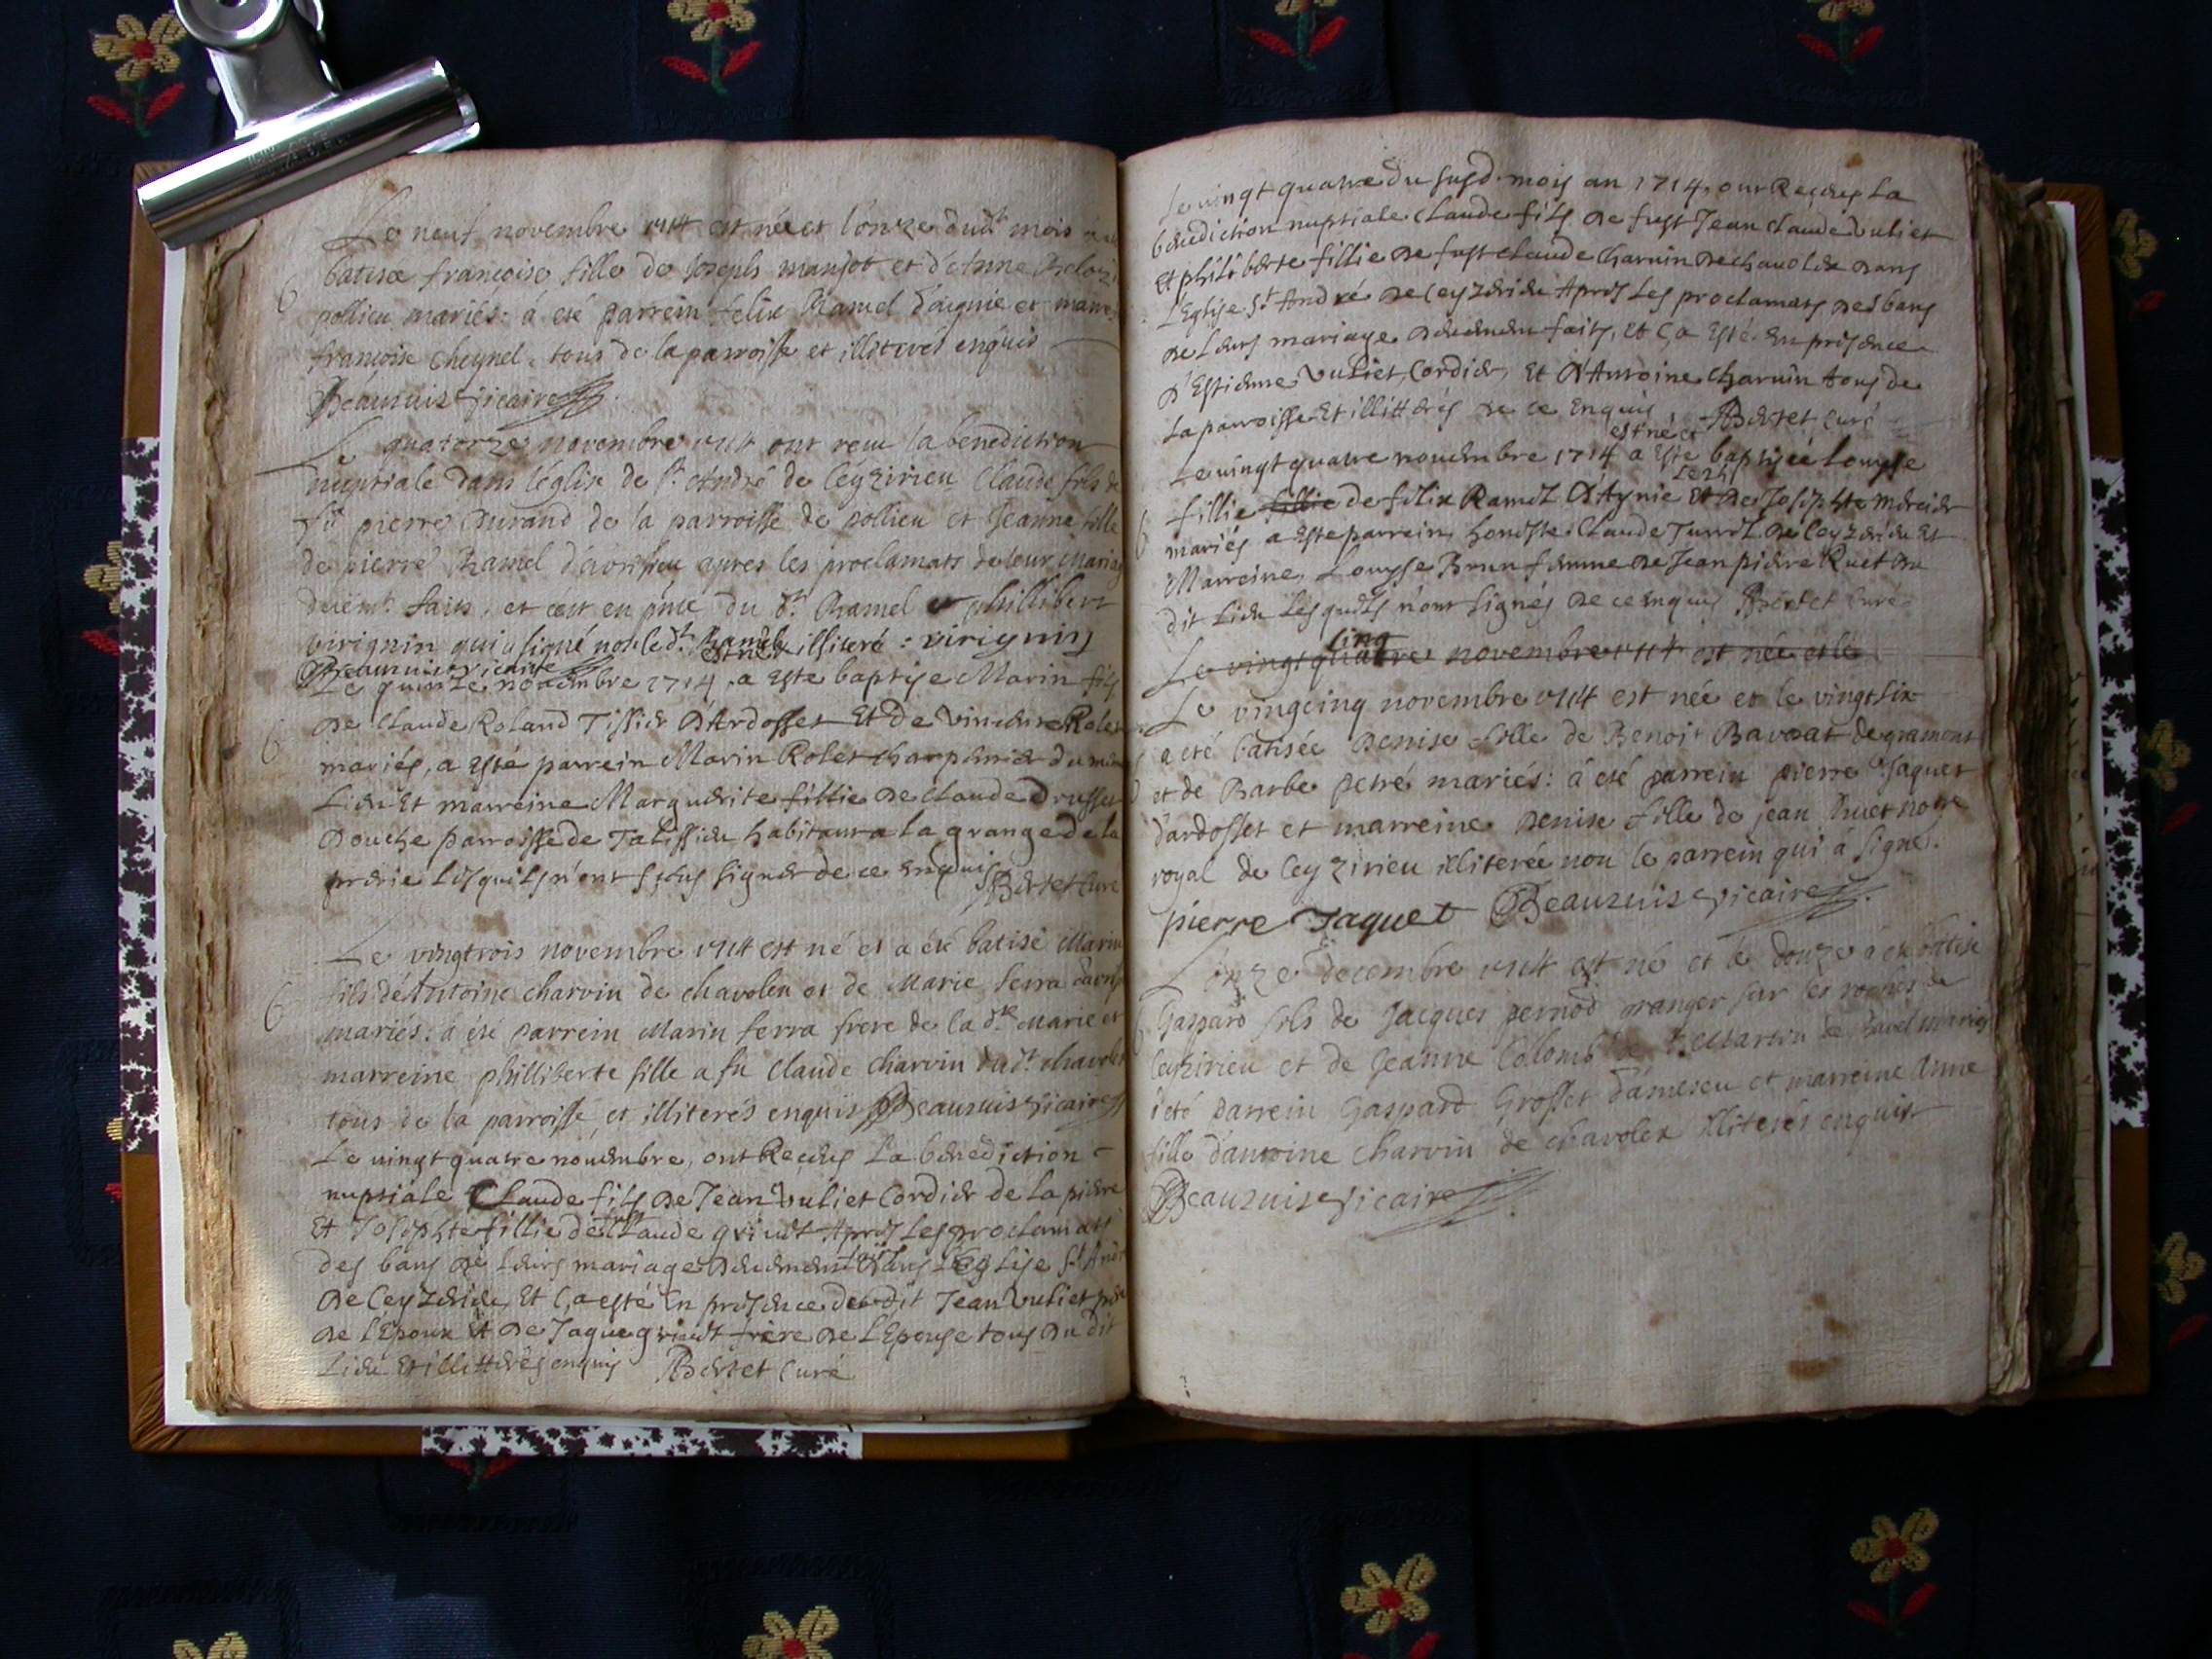 Le neuf novembre 1714 est née et l'onze dudt mois a été
batisée francoise fille de Joseph manjot et d'Anne
pollieu mariés: á eté parrein felix Ramel d'aignie et marre
francoise cheynel. tous de la parroisse et illiterés enquis
Beauzuis vicaire
Le quatorze novembre 1714 ont recu la benediction
nuptiale dans l'église de St André de Céyzirieu Claude fils de
fût pierre Durand de la parroisse de pollieu et Jeanne fille
de pierre Ramel d'avrissieu apres les proclamats de leur mariag
duëmt faits, et c'est en pnce du dt Ramel et phillibert
virignin qui a signé non le dt Ramel illiteré : virignin
Beauzuis vicaire
est né et
Le quinze novembre 1714 a Esté baptisé Marin fils
de Claude Roland Tissier d'Ardosset Et de vincente Rolet
mariés, a Esté parrein Marin Rolet charpentier du mesme
Lieu Et marreine Marguerite fillie de Claude Drusset
Douche parroisse de Talissieu habitant a la grange de la
prerie Lesquels n'ont sceus signer de ce enquis
Bertet Curé
Le vingtrois novembre 1714 est né et a été batisé Marin
fils d'Antoine charvin de chavolex et de Marie Serra
mariés. á été parrein Marin Serra frere de la dte Marie et
marreine philliberte fille a fu Claude charvin dudt chavolex
tous de la parroisse, et illiterés enquis Beauzuis vicaire
Le vingt quatre novembre, ont Receus La benediction
nuptiale Claude fils de Jean Vuliet Cordier de la pierre
Et Josephte fillie de Claude grivet Apres Les proclamats
des bans de Leurs mariage deuement faits dans L'Eglise St André
de Ceyzerieu, Et C,a esté En presence dudit Jean Vuliet pere
de L'Epoux et de Jaque grivet frère de L'Epouse tous du dit
Lieu Et illitterés enquis Bertet Curé
Le vingt quatre du susd. mois an 1714, ont Receus La
benediction nuptiale Claude fils de fust Jean Claude Vuliet
Et philiberte fillie de fust Claude Charvin de chavolex dans
L'Eglise St André de Ceyzerieu Apres Les proclamats des bans
de Leurs mariage deuement faits, Et C,a Esté en presence
d'Estienne Vuliet, Cordier, Et d'Antoine Charvin tous de
La parroisse Et illittérés de ce Enquis, Bertet Curé
est né et
Le vingt quatre novembre 1714 a Esté baptisée Louyse
Le 24
fillie fillie de felix Ramel d'Aynie Et de Josephte Mercier
mariés a Esté parrein, honeste Claude Turrel de Ceyzerieu Et
Marreine, Louyse Brun femme de Jean pierre Ruet du
dit Lieu Lesquels n'ont signés de ce enquis Bertet Curé
cinq
Le vingt quatre novembre 1714 est née et le
Le vingcinq novembre 1714 est née et le vingtsix
a eté batisée Denise fille de Benoit Bavozat de gramont
et de Barbe petré mariés: á eté parrein pierre Jaquet
d'ardosset et marreine Denise fille de jean Ruet notre
royal de Ceyzirieu illiterée non le parrein qui á signé.
pierre Jaquet Beauzuis vicaire
L'onze decembre 1714 est né et le douze á eté batisé
Gaspard fils de Jacques pernod granger sur les roches de
Ceyzirieu et de Jeanne Colomb de St Martin de Bavel mariés
á eté parrein Gaspard Grosset d'ameseu et marreine Anne
fille d'antoine Charvin de chavolex illiterés enquis
Beauzuis vicaire